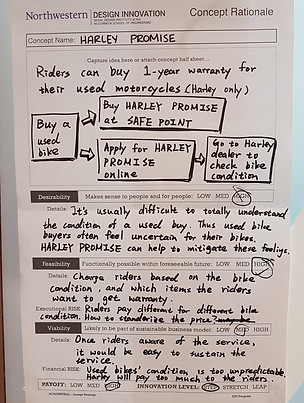 Northwestern | DESIGN INNOVATION Concept Rationale
Concept Name: HARLEY PROMISE
Capture idea here or attach concept half sheet...
Riders can buy 1-year warranty for
their used motorcycles (Harley only)
Buy a
used
bike
Buy HARLEY PROMISE
at SAFE POINT
Apply for HARLEY
PROMISE
online
Go to Harley
dealer to
check bike
condition
Desirability Makes sense to people and for people: LOW MED HIGH
Details: It's usually difficult to totally understand
the condition of a used buy. Thus used bike
buyers often feel uncertain for their bikes.
HARLEY PROMISE can help to mitigate these feelings.
Feasibility Functionally possible within foreseeable future: LOW MED HIGH
Details: Charge riders based on the bike
condition, and which items the riders
want to get warranty.
Execution RISK: Riders pay different for different bike
condition. How to standardize the price
Viability Likely to be part of sustainable business model: LOW MED HIGH
Details: Once riders aware of the service,
it would be easy to sustain the
service.
Financial RISK: Used bikes' condition is too unpredictable,
Harley will pay too much to the riders.
PAYOFF: LOW MED HIGH INNOVATION LEVEL: STEP STRETCH LEAP